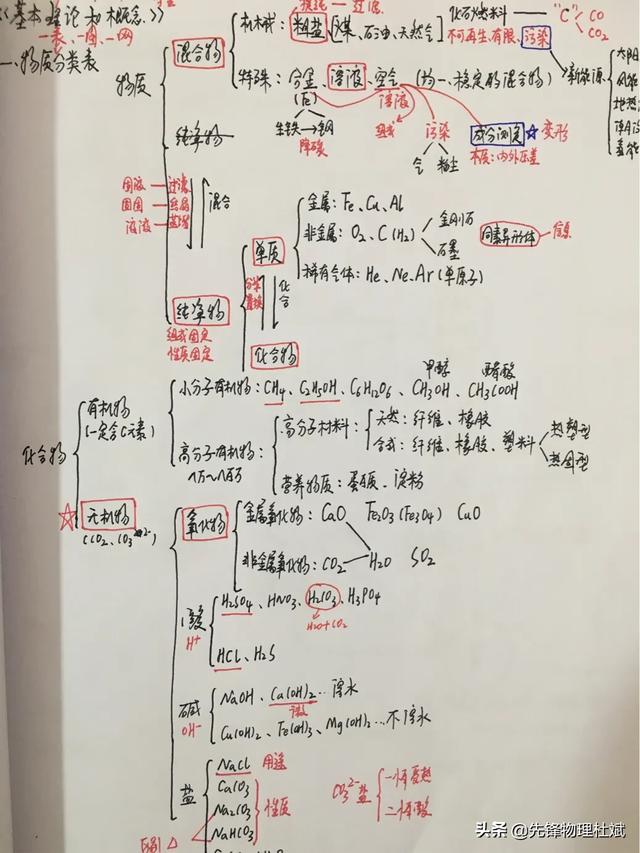 《基本理论和概念》
一表、一图、一网
一、物质分类表
物质
混合物
机械: 粗盐、煤、石油、天然气
化石燃料
"C"
CO
CO2
不可再生、有限、污染
新能源
太阳
风能
地热
特殊: 合金、溶液、空气 (均一、稳定的混合物)
(固)
溶液
生铁→钢
降碳
组成
污染
气
粉尘
成分测定
变形
本质: 内外压差
纯净物
固液 — 过滤
固固 — 结晶
液液 — 蒸馏
混合
纯净物
组成固定
性质固定
单质
金属: Fe、Cu、Al
非金属: O2、C(H2)
金刚石
石墨
同素异形体
稀有气体: He、Ne、Ar(单原子)
分解
置换
化合
化合物
化合物
有机物
(一定含C元素)
小分子有机物: CH4、C2H5OH、C6H12O6、CH3OH、CH3COOH
甲醇
醋酸
高分子有机物:
几万~几百万
高分子材料:
天然: 纤维、橡胶
合成: 纤维、橡胶、塑料
热塑型
热固型
营养物质: 蛋白质、淀粉
无机物
(CO2、CO3 2-)
氧化物
金属氧化物: CaO Fe2O3(Fe3O4) CuO
非金属氧化物: CO2 H2O SO2
酸
H+
H2SO4、HNO3、H2CO3、H3PO4
H2O+CO2
HCl、H2S
碱
OH-
NaOH、Ca(OH)2...溶水
微
Cu(OH)2、Fe(OH)3、Mg(OH)2...不溶水
盐
NaCl 用途
CaCO3
Na2CO3
NaHCO3
性质
CO3 2-盐
一怕受热
二怕酸
区别
头条 @先锋物理杜斌